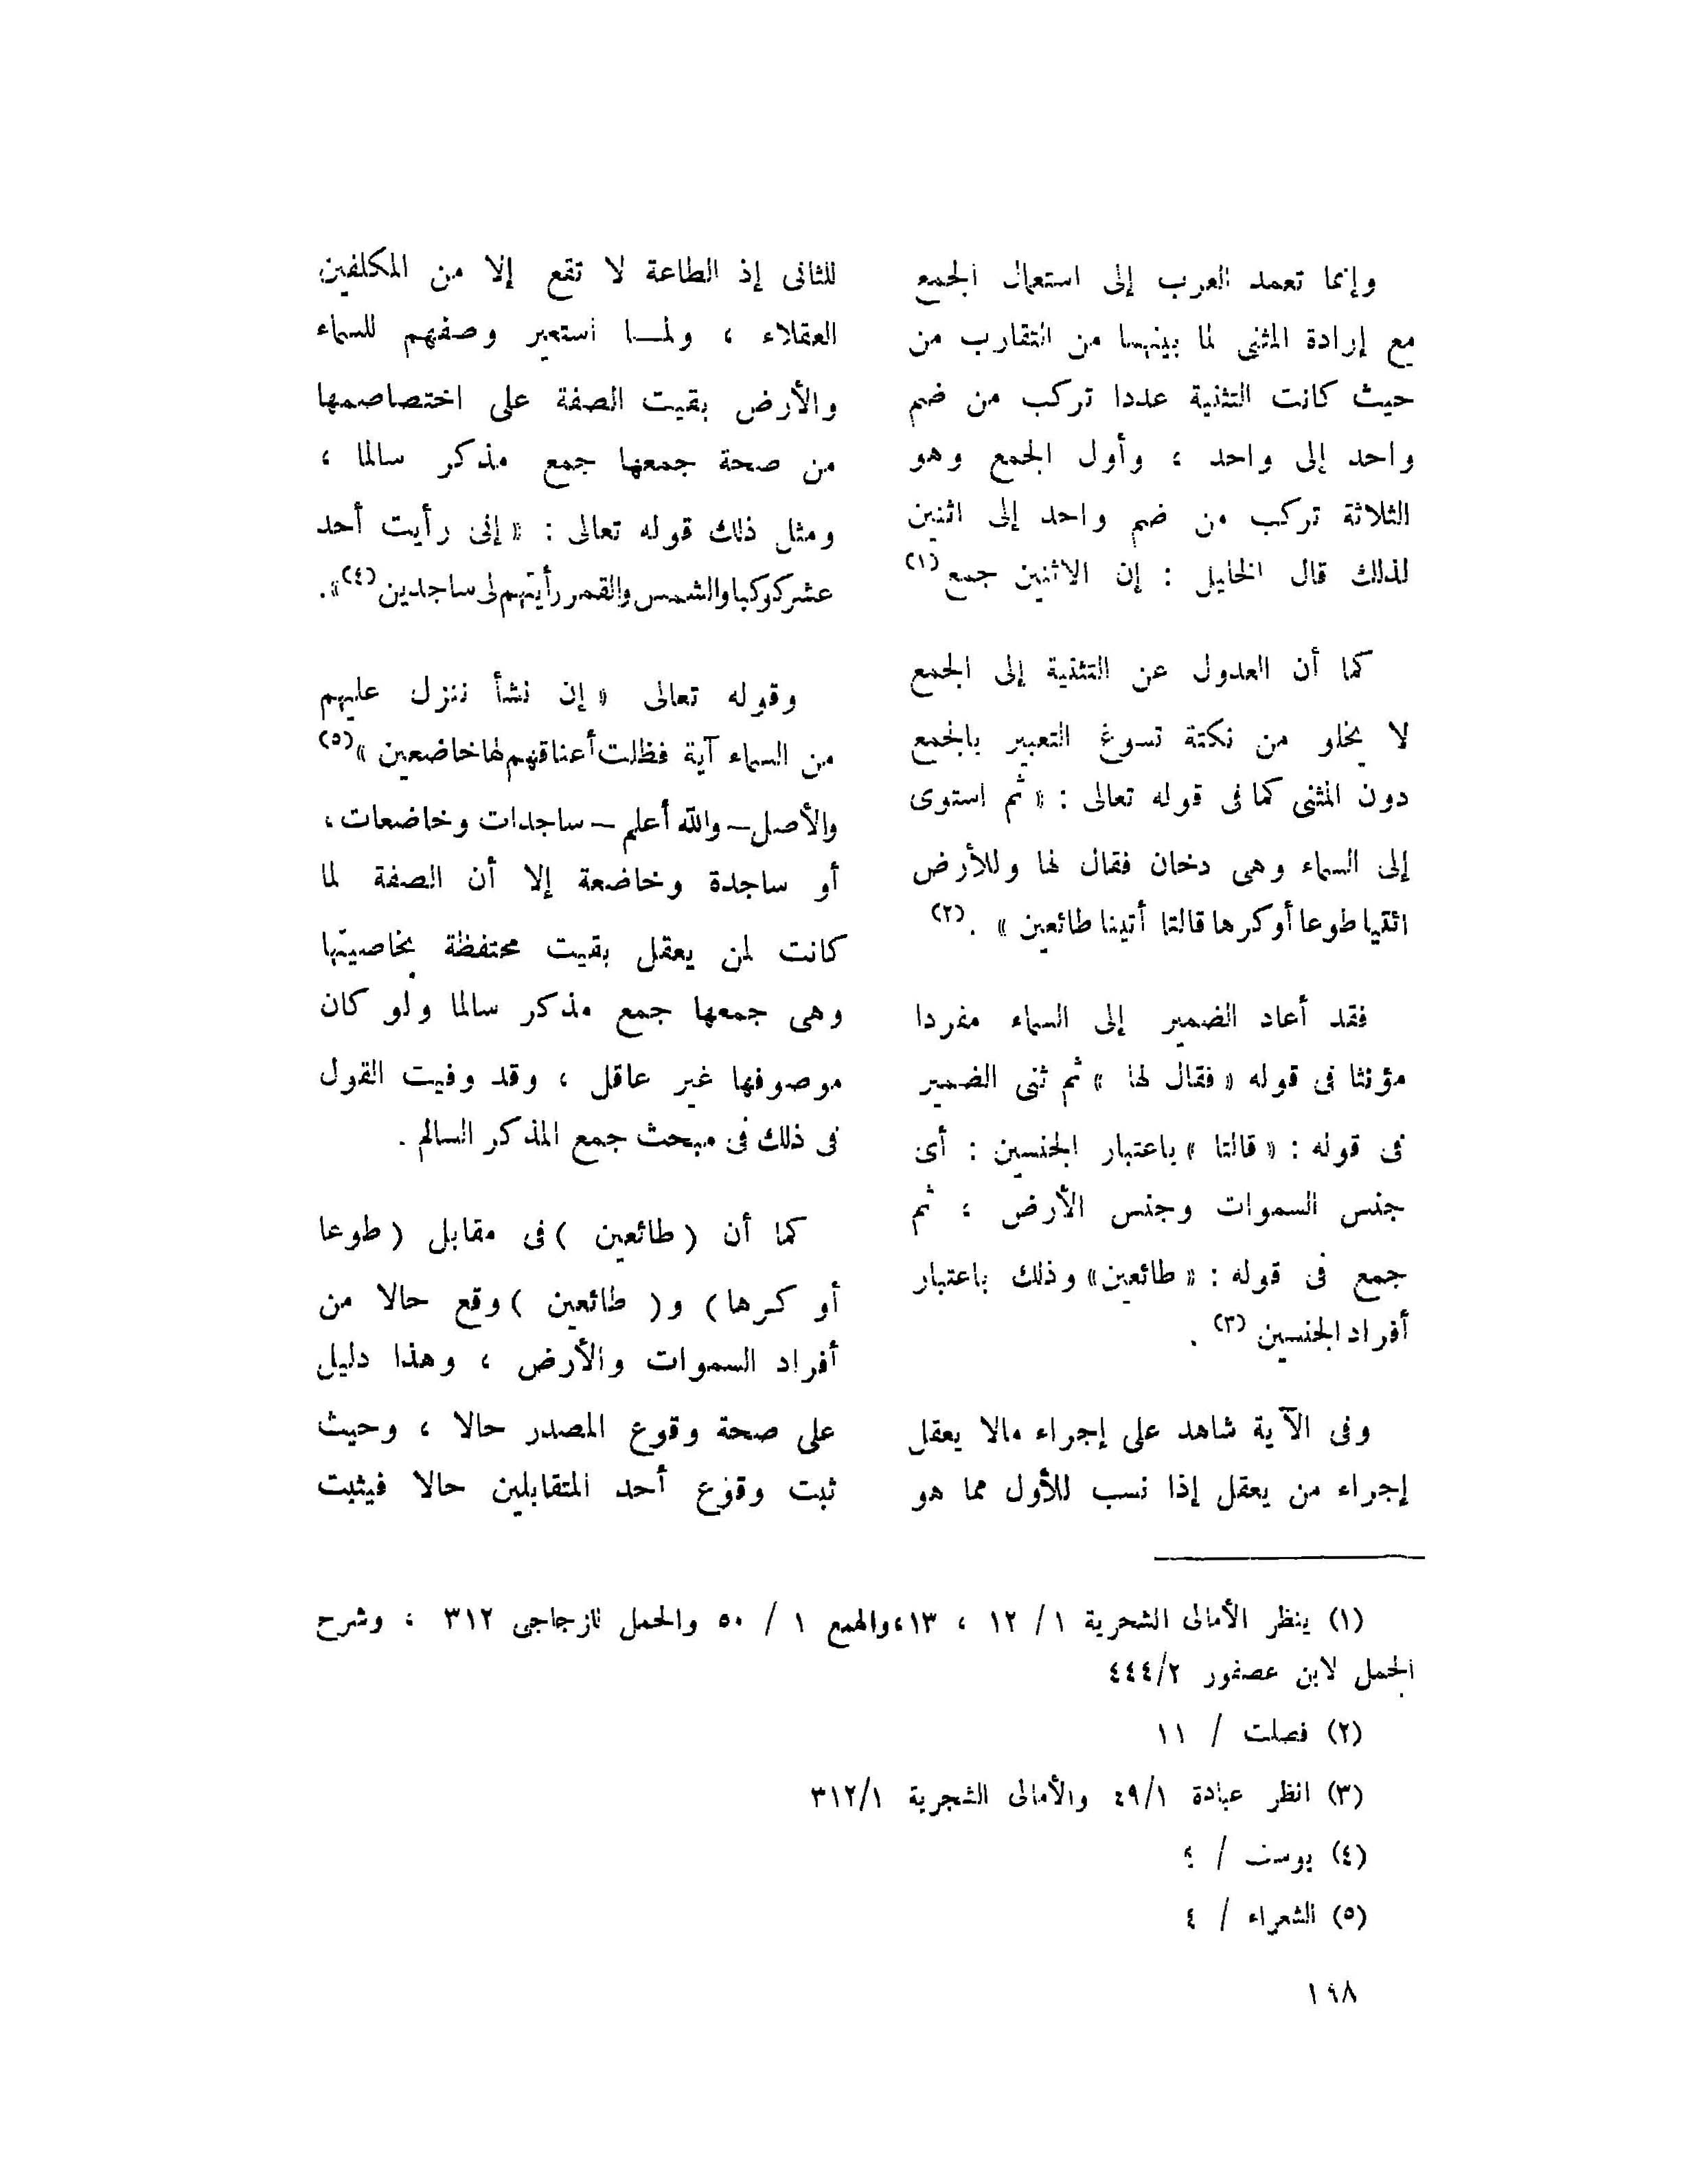 وإنما تعمد العرب إلى استعمال الجمع
مع إرادة المثنى لما بينهما من التقارب من
حيث كانت التثنية عددا تركب من ضم
واحد إلى واحد ، وأول الجمع وهو
الثلاثة تركب من ضم واحد إلى اثنين
لذلك قال الخليل : إن الاثنين جمع (١)
كما أن العدول عن التثنية إلى الجمع
لا يخلو من نكتة تسوغ التعبير بالجمع
دون المثنى كما فى قوله تعالى : « ثم استوى
إلى السماء وهى دخان فقال لها وللأرض
ائتيا طوعا أو كرها قالتا أتينا طائعين » . (٢)
فقد أعاد الضمير إلى السماء مفردا
مؤنثا فى قوله « فقال لها » ثم ثنى الضمير
فى قوله : « قالتا » باعتبار الجنسين : أى
جنس السموات وجنس الأرض ، ثم
جمع فى قوله : « طائعين» وذلك باعتبار
أفراد الجنسين (٣) .
وفى الآية شاهد على إجراء مالا يعقل
إجراء من يعقل إذا نسب للأول مما هو
للثانى إذ الطاعة لا تقع إلا من المكلفين
العقلاء ، ولمــا استعير وصفهم للسماء
والأرض بقيت الصفة على اختصاصمها
من صحة جمعها جمع مذكر سالما ،
ومثل ذلك قوله تعالى : « إنى رأيت أحد
عشر كوكبا والشمس والقمر رأيتهم لى ساجدين (٤)» .
وقوله تعالى « إن نشأ ننزل عليهم
من السماء آية فظلت أعناقهم لها خاضعين » (٥)
والأصل – والله أعلم – ساجدات وخاضعات ،
أو ساجدة وخاضعة إلا أن الصفة لما
كانت لمن يعقل بقيت محتفظة بخاصيتها
وهى جمعها جمع مذكر سالما ولو كان
موصوفها غير عاقل ، وقد وفيت القول
فى ذلك فى مبحث جمع المذكر السالم .
كما أن ( طائعين ) فى مقابل ( طوعا
أو كرها ) و ( طائعين ) وقع حالا من
أفراد السموات والأرض ، وهذا دليل
على صحة وقوع المصدر حالا ، وحيث
ثبت وقوع أحد المتقابلين حالا فيثبت
(١) ينظر الأمالى الشحرية ١ / ١٢ ، ١٣،والهمع ١ / ٥٠ والحمل للزجاجى ٣١٢ ، وشرح
الجمل لابن عصفور ٤٤٤/٢
(٢) فصلت / ١١
(٣) انظر عبادة ٤٩/١ والأمالى الشجرية ٣١٢/١
(٤) يوسف / ٤
(٥) الشعراء / ٤
١٩٨